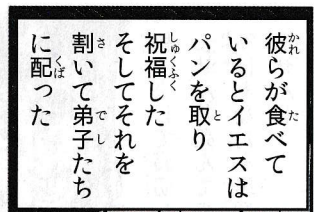 彼らが食べて
いるとイエスは
パンを取り
祝福した
そしてそれを
割いて弟子たち
に配った